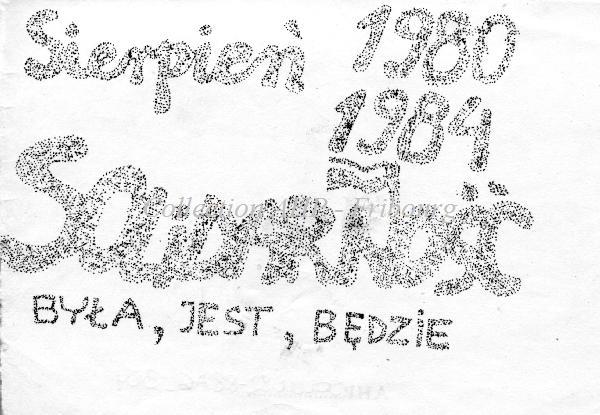 Sierpień 1980
1984
Solidarność
BYŁA, JEST, BĘDZIE
Collection AHP - Fribourg